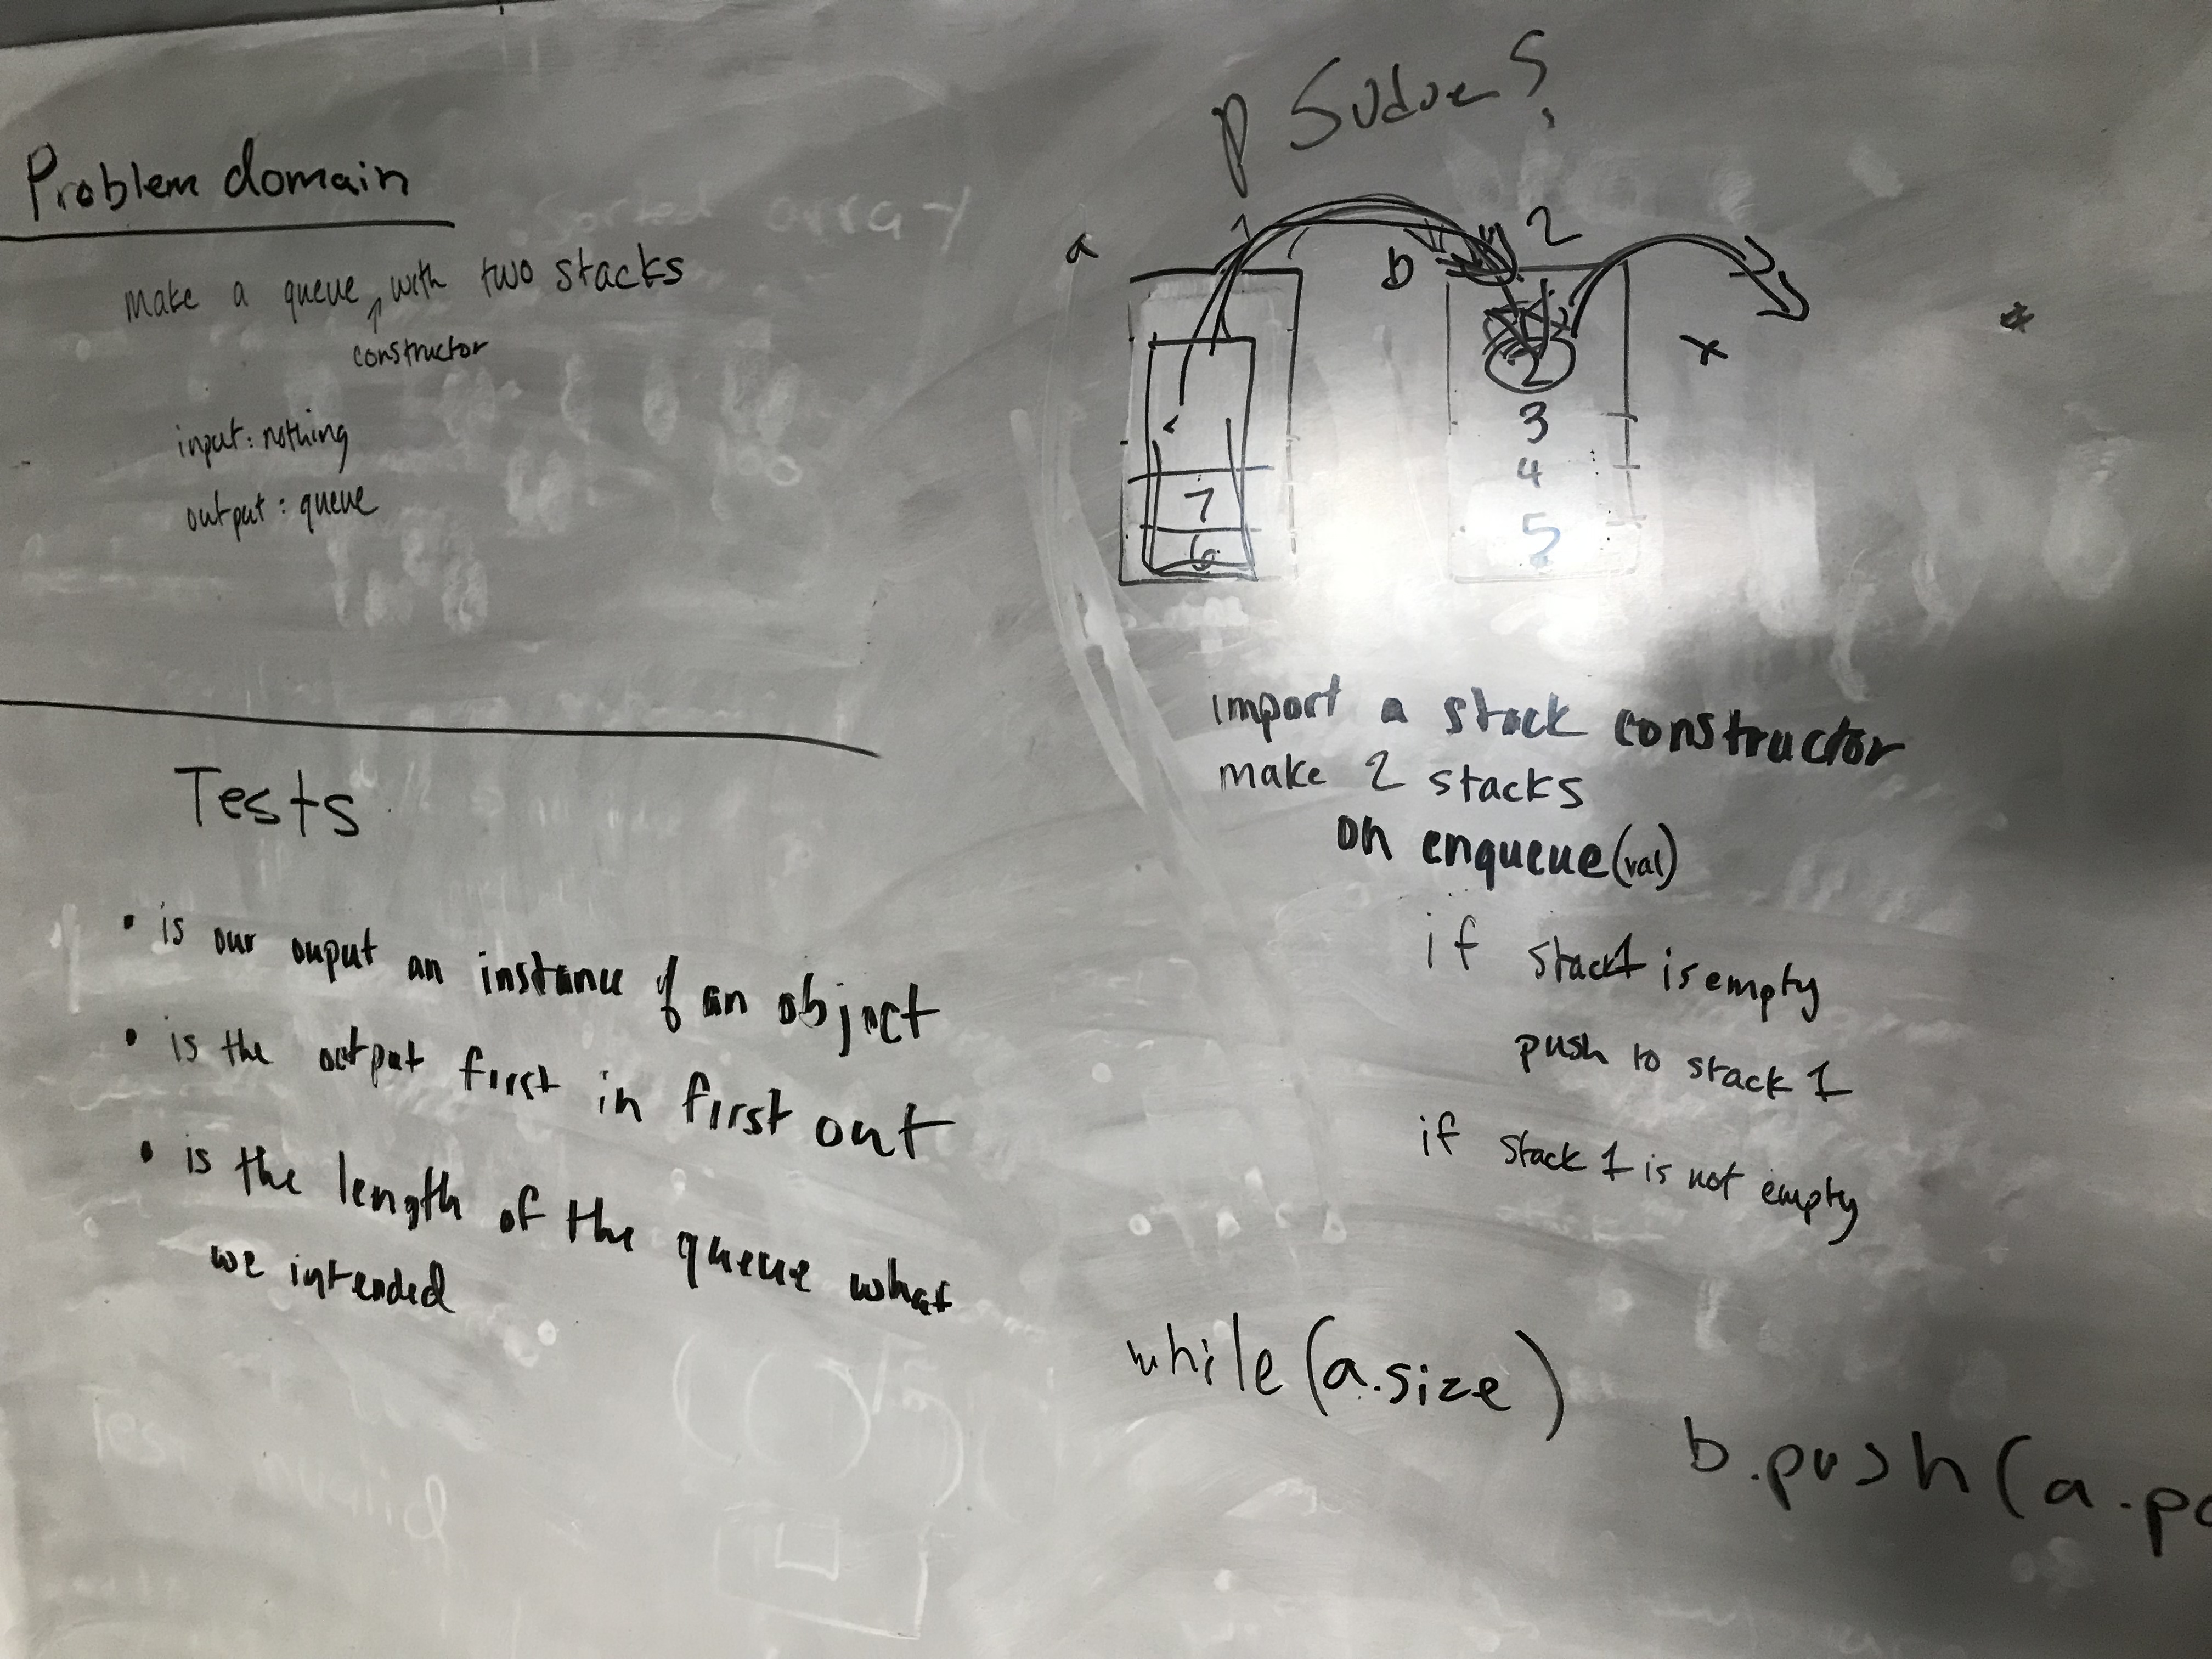 Problem domain
make a queue with two stacks
constructor
input: nothing
output: queue
Tests
• is our ouput an instance of an object
• is the output first in first out
• is the length of the queue what
we intended
a
b
2
x
2
3
4
5
7
6
import a stack constructor
make 2 stacks
on enqueue(val)
if stack1 is empty
push to stack 1
if stack 1 is not empty
while (a.size)
b.push(a.po
sorted array